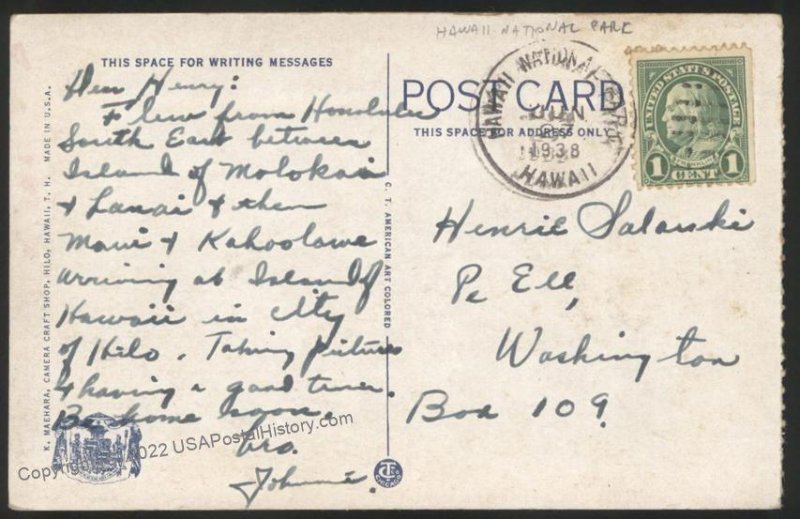 HAWAII NATIONAL PARK
THIS SPACE FOR WRITING MESSAGES
Dear Henry:
Flew from Honolulu
South East between
Island of Molokai
& Lanai & then
Maui & Kahoolawe
arriving at Island of
Hawaii in City
of Hilo. Taking pictures
& having a good time.
Be home soon.
Bro.
Johnnie.
POST CARD
THIS SPACE FOR ADDRESS ONLY
HAWAII NATIONAL PARK
JUN
1938
HAWAII
UNITED STATES POSTAGE
FRANKLIN
1 CENT 1
Henrie
Pe Ell,
Washington
Box 109
K. MAEHARA, CAMERA CRAFT SHOP, HILO, HAWAII, T. H. MADE IN U.S.A.
C. T. AMERICAN ART COLORED
CT
CHICAGO
Copyright 2022 USAPostalHistory.com